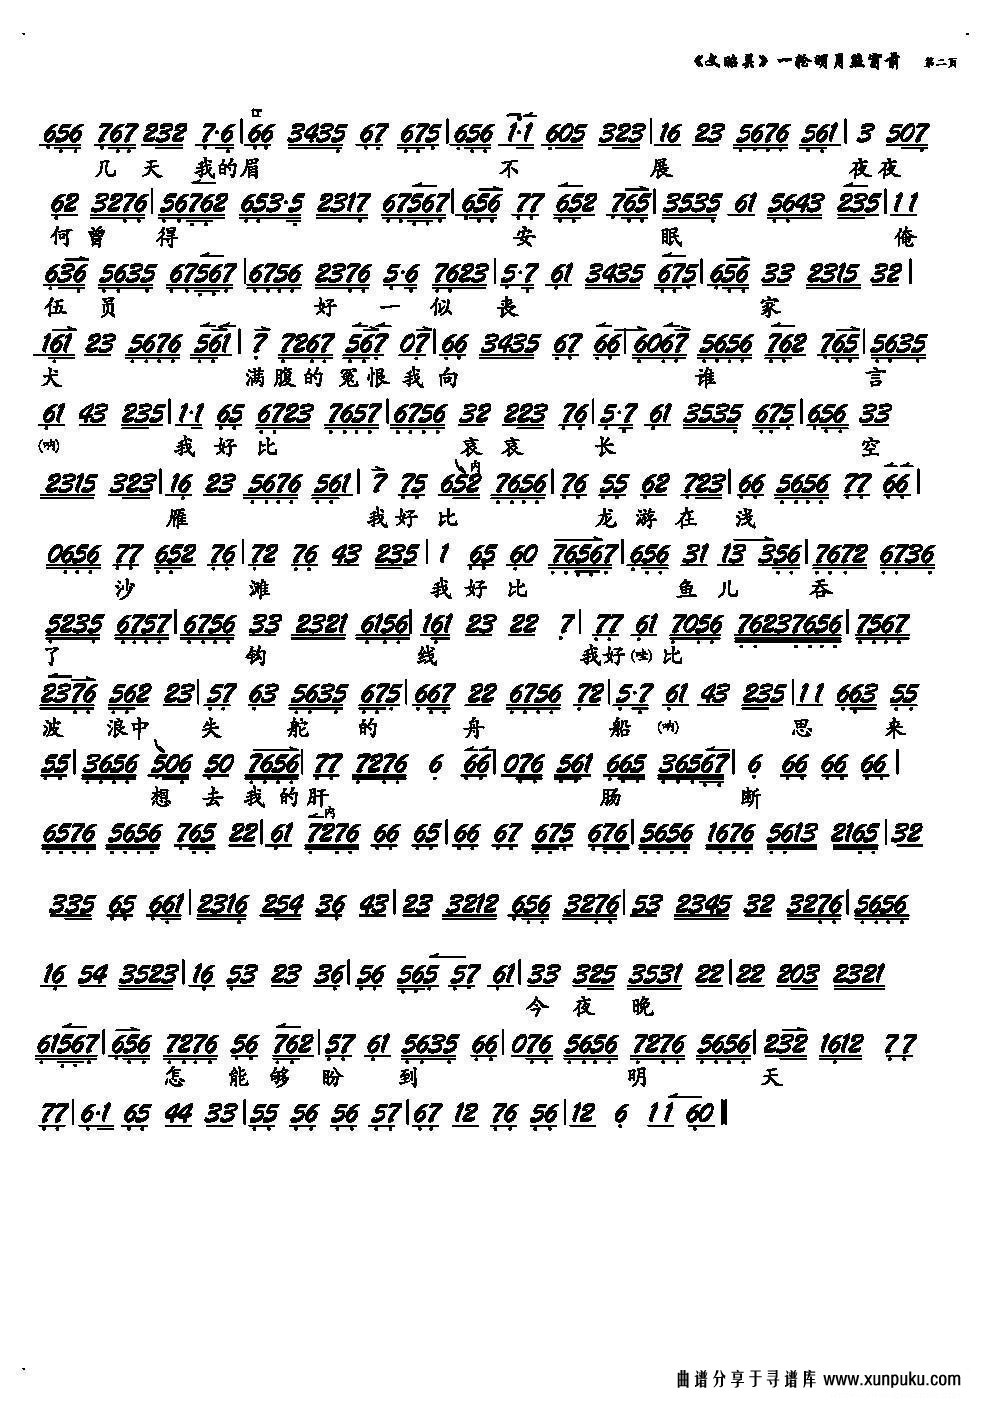 《文昭关》一轮明月照窗前 第二页
656 767 232 7·6|66 3435 67 675|656 1·1 605 323|16 23 5676 561|3 507
几天 我的眉 不 展 夜夜
62 3276|56762 653·5 2317 67567|656 77 652 765|3535 61 5643 235|11
何曾 得 安 眠 俺
636 5635 67567|6756 2376 5·6 7623|5·7 61 3435 675|656 33 2315 32|
伍 员 好 一 似 丧 家
161 23 5676 561|7 7267 567 07|66 3435 67 66|6067 5656 762 765|5635
犬 满腹的 冤恨 我向 谁 言
61 43 235|1·1 65 6723 7657|6756 32 223 76|5·7 61 3535 675|656 33
(呐) 我 好 比 哀 哀 长 空
2315 323|16 23 5676 561|7 75 652 7656|76 55 62 723|66 5656 77 66|
内
雁 我好 比 龙 游 在 浅
0656 77 652 76|72 76 43 235|1 65 60 76567|656 31 13 356|7672 6736
沙 滩 我 好 比 鱼 儿 吞
5235 6757|6756 33 2321 6156|161 23 22 7|77 61 7056 76237656|7567
了 钩 线 我好(哇)比
2376 562 23|57 63 5635 675|667 22 6756 72|5·7 61 43 235|11 663 55
波 浪中 失 舵 的 舟 船 (呐) 思 来
55|3656 506 50 7656|77 7276 6 66|076 561 665 36567|6 66 66 66|
想 去 我 的 肝 肠 断
内
6576 5656 765 22|61 7276 66 65|66 67 675 676|5656 1676 5613 2165|32
335 65 661|2316 254 36 43|23 3212 656 3276|53 2345 32 3276|5656
16 54 3523|16 53 23 36|56 565 57 61|33 325 3531 22|22 203 2321
今 夜 晚
61567|656 7276 56 762|57 61 5635 66|076 5656 7276 5656|232 1612 77
怎 能 够 盼 到 明 天
77|6·1 65 44 33|55 56 56 57|67 12 76 56|12 6 11 60‖
曲谱分享于寻谱库 www.xunpuku.com